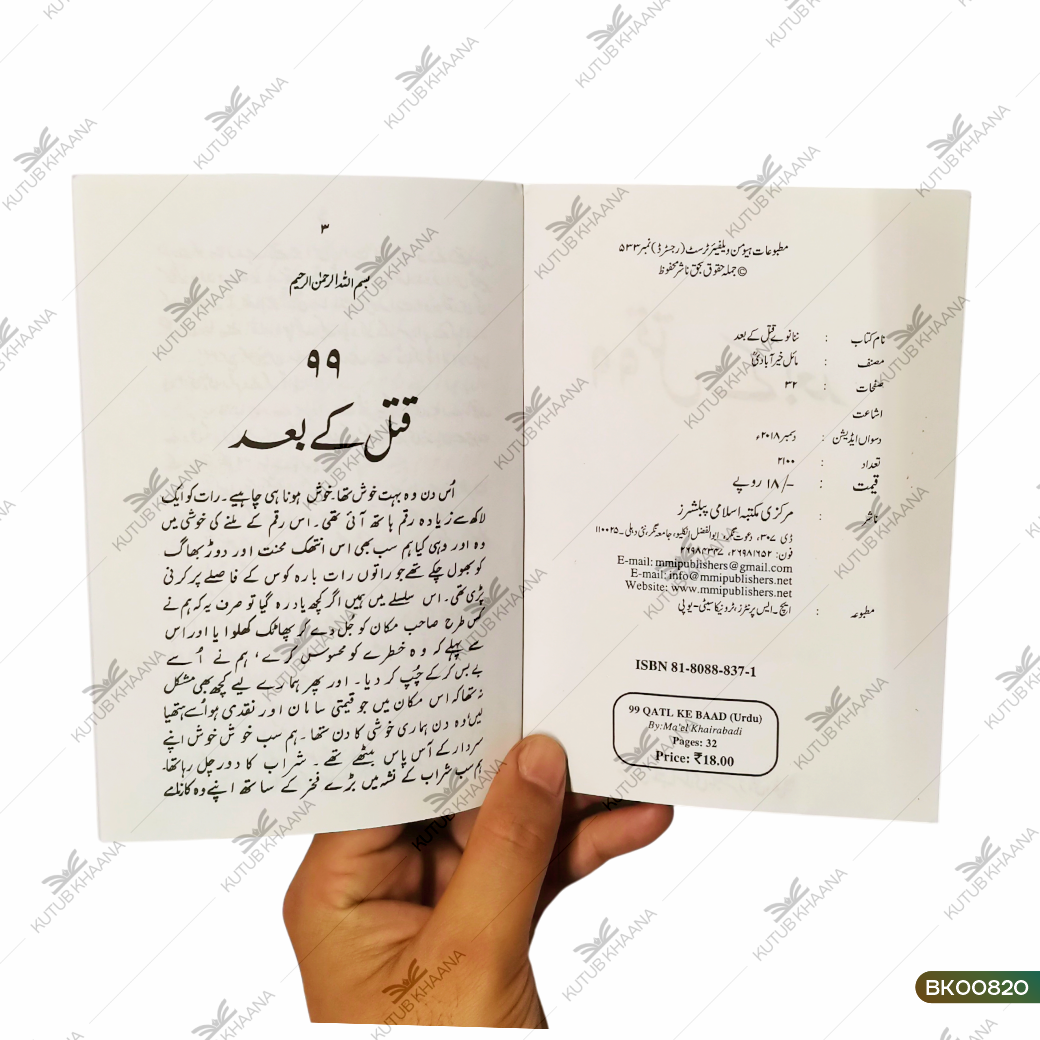 مطبوعات ہیومن ویلفیئر ٹرسٹ (رجسٹرڈ) نمبر ۵۳۳
© جملہ حقوق بحق ناشر محفوظ
نام کتاب : ننانوے قتل کے بعد
مصنف : مائل خیرآبادیؒ
صفحات : ۳۲
اشاعت
دسواں ایڈیشن : دسمبر ۲۰۱۸ء
تعداد : ۲۱۰۰
قیمت : ۱۸/- روپے
ناشر : مرکزی مکتبہ اسلامی پبلشرز
ڈی ۳۰۷، دعوت نگر، ابوالفضل انکلیو، جامعہ نگر، نئی دہلی۔ ۱۱۰۰۲۵
فون: ۲۶۹۸۱۶۵۲، ۲۶۹۸۴۳۴۷
E-mail: mmipublishers@gmail.com
E-mail: info@mmipublishers.net
Website: www.mmipublishers.net
مطبوعہ : ایچ۔ ایس پرنٹرز، ٹرونیکا سیٹی۔ یوپی
ISBN 81-8088-837-1
99 QATL KE BAAD (Urdu)
By: Ma'el Khairabadi
Pages: 32
Price: ₹18.00
۳
بسم اللہ الرحمٰن الرحیم
۹۹
قتل کے بعد
اُس دن وہ بہت خوش تھا۔ خوش ہونا ہی چاہیے۔ رات کو ایک
لاکھ سے زیادہ رقم ہاتھ آئی تھی۔ اس رقم کے ملنے کی خوشی میں
وہ اور وہی کیا ہم سب بھی اس انتھک محنت اور دوڑ بھاگ
کو بھول چکے تھے جو راتوں رات بارہ کوس کے فاصلے پر کرنی
پڑی تھی۔ اس سلسلے میں ہمیں اگر کچھ یاد رہ گیا تو صرف یہ کہ ہم نے
کس طرح صاحب مکان کو جُل دے کر پھاٹک کھلوایا اور اس
سے پہلے کہ وہ خطرے کو محسوس کرے، ہم نے اُسے
بے بس کر کے چُپ کر دیا۔ اور پھر ہمارے لیے کچھ بھی مشکل
نہ تھا کہ اس مکان میں جو قیمتی سامان اور نقدی ہو اُسے ہتھیا
لیں۔ وہ دن ہماری خوشی کا دن تھا۔ ہم سب خوش خوش اپنے
سردار کے آس پاس بیٹھے تھے۔ شراب کا دور چل رہا تھا۔
ہم سب شراب کے نشہ میں بڑے فخر کے ساتھ اپنے وہ کارنامے
KUTUB KHAANA
BK00820